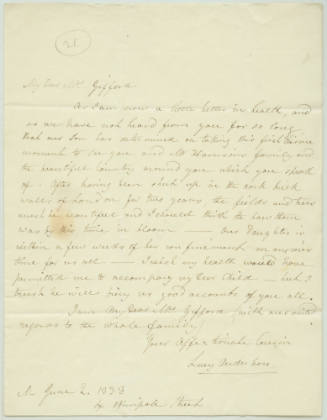 21
My dear Mr. Gifford
As I am now a little better in health, and
as we have not heard from you for so long
that our Son has determined on taking this first leisure
moment to see you and Mr Harrisons family, and
the beautiful Country around you which you speak
of. After having been shut up in the dark brick
walls of London for two years the fields and trees
must be beautiful and I should think the hawthorn
was by this time in bloom — Our Daughter is
within a few weeks of her confinement an anxious
time for us all — I wish my health would have
permitted me to accompany my dear Child — but I
trust he will bring us good accounts of you all.
I am My dear Mr Gifford (with our united
regards to the whole family)
Your Affectionate Cousin
Lucy
June 2. 1838
Wimpole Street